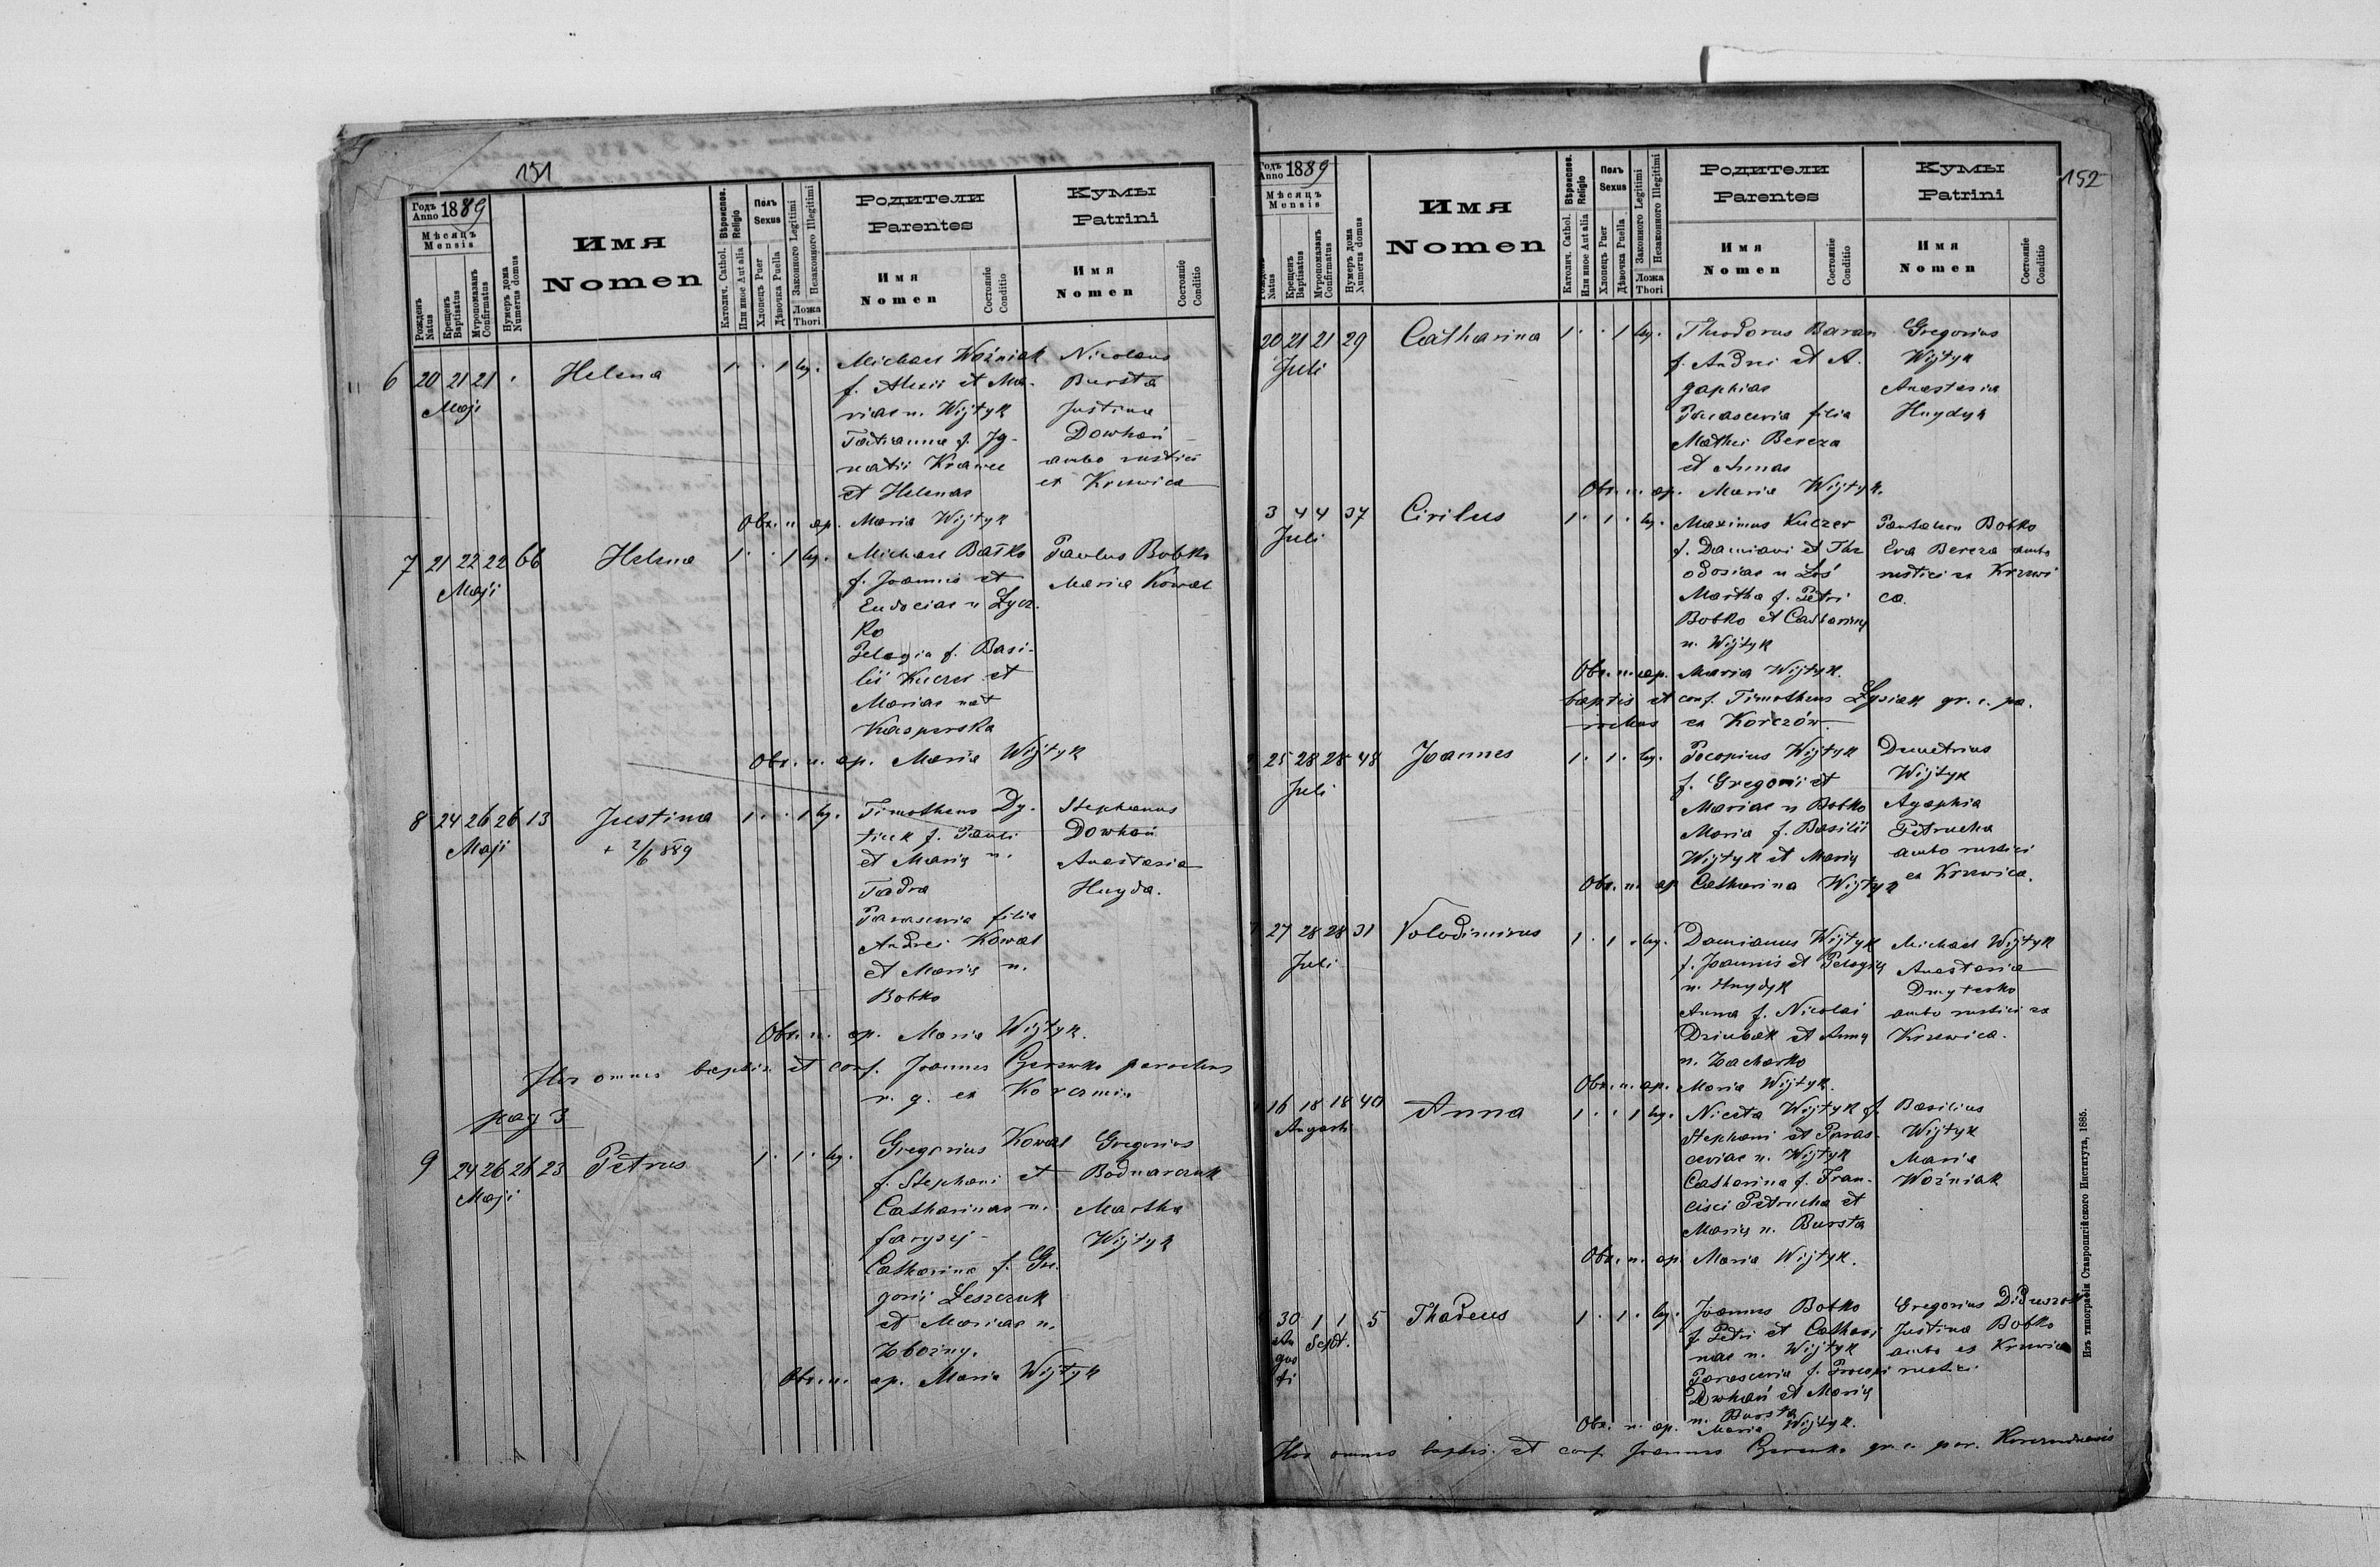 151
Годъ Anno 1889
Мѣсяцъ Mensis
Рожденъ Natus
Крещенъ Baptisatus
Мѵропомазанъ Confirmatus
Нумеръ дома Numerus domus
Имя Nomen
Вѣроиспов. Religio
Католич. Cathol.
Или иное Aut alia
Полъ Sexus
Хлопецъ Puer
Дѣвочка Puella
Законного Legitimi
Незаконного Illegitimi
Ложа Thori
Родители Parentes
Имя Nomen
Состояніе Conditio
Кумы Patrini
Имя Nomen
Состояніе Conditio
6 20 21 21 . Helena 1 . . 1 leg. Michael Woźniak Nicolaus
Maji f. Alexii et Ma- Bursta
riae n. Wijtyk Justina
Tatianna f. Ig- Dowhań
natii Krawec ambo rustici
et Helenae ex Krzewica
Obs. n. ap. Maria Wijtyk
7 21 22 22 66 Helena 1 . . 1 leg. Michael Batko Paulus Bobko
Maji f. Joannis et Maria Kowal
Eudociae n Łycz-
ko
Pelagia f. Basi-
lii Kuczer et
Mariae nat
Kasperska
Obs. n. ap. Maria Wijtyk
8 24 26 26 13 Justina 1 . . 1 leg. Timotheus Dy- Stephanus
Maji + 2/6 889 tiuk f. Pauli Dowhań
et Marię n. Anastasia
Fadra Huyda.
Parascevia filia
Andrei Kowal
et Marię n.
Bobko
Obs. n. ap. Maria Wijtyk.
Hos omnes baptis. et conf. Joannes parochus
r. g. ex Korczmin
pag 3
9 24 26 26 23 Petrus 1 . 1 . leg. Gregorius Kowal Gregorius
Maji f. Stephani et Bodnarczuk
Catharinae n. Martha
farysej Wijtyk
Catharina f. Gre-
gorii Leszczuk
et Mariae n.
Zbożny.
Obs. n. ap. Maria Wijtyk
152
Годъ Anno 1889
Мѣсяцъ Mensis
Рожденъ Natus
Крещенъ Baptisatus
Мѵропомазанъ Confirmatus
Нумеръ дома Numerus domus
Имя Nomen
Вѣроиспов. Religio
Католич. Cathol.
Или иное Aut alia
Полъ Sexus
Хлопецъ Puer
Дѣвочка Puella
Законного Legitimi
Незаконного Illegitimi
Ложа Thori
Родители Parentes
Имя Nomen
Состояніе Conditio
Кумы Patrini
Имя Nomen
Состояніе Conditio
20 21 21 29 Catharina 1 . . 1 leg. Theodorus Baran Gregorius
Juli f. Andrei et A- Wijtyk
gaphiae Anastasia
Parascevia filia Huydyk
Mathei Bereza
et Annae
Obs. n. ap. Maria Wijtyk.
3 4 4 37 Cirilus 1 . 1 . leg. Maximus Kuczer Pantaleon Bobko
Juli f. Damiani et The Eva Bereza ambo
odosiae n Łoś rustici ex Krzewi
Martha f. Petri ca.
Bobko et Catharinę
n. Wijtyk
Obs. n. ap. Maria Wijtyk.
baptis et conf. Timotheus Łysiak gr. c. pa-
rochus ex Korczów
25 28 28 48 Joannes 1 . 1 . leg. Procopius Wijtyk Demetrius
Juli f. Gregorii et Wijtyk
Mariae n Bobko Agaphia
Maria f. Basilii Petrucha
Wijtyk et Marię ambo rustici
Obs. n. ap Catharina Wijtyk ex Krzewica.
27 28 28 31 Volodimirus 1 . 1 . leg. Damianus Wijtyk Michael Wijtyk
Juli f. Joannis et Pelagię Anastasia
n. Huydyk Dmyterko
Anna f. Nicolai ambo rustici ex
Dziubak et Annę Krzewica.
n. Zacharko
Obs. n. ap. Maria Wijtyk.
16 18 18 40 Anna 1 . . 1 leg. Niceta Wijtyk f. Basilius
Augusti Stephani et Paras- Wijtyk
ceviae n. Wijtyk Maria
Catharina f. Fran- Woźniak
cisci Petrucha et
Marię n. Bursta
Obs. n. ap. Maria Wijtyk.
30 1 1 5 Thadeus 1 . 1 . leg. Joannes Bobko Gregorius
Au Sept. f. Petri et Cathari Justina Bobko
gus nae n. Wijtyk ambo ex Krzewica
ti Parascevia f. Procopi rustici
Dowhań et Marię
n. Bursta
Obs. n. ap. Maria Wijtyk.
Hos omnes baptis. et conf. Joannes gr. c. par.
Изъ типографіи Ставропигійского Института, 1885.